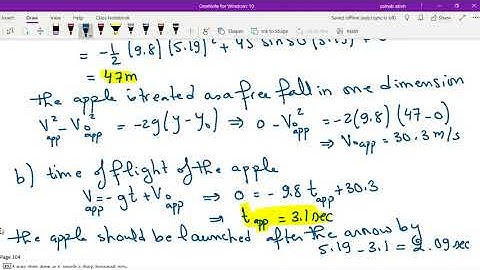 OneNote for Windows 10
File Home Insert Draw View Help Class Notebook
= -1/2 (9.8)(5.19)² + 45 sin50 (5.19) + 0
= 47m
the apple is treated as a free fall in one dimension
V²app - V₀²app = -2g(y-y₀) ⇒ 0 - V₀²app = -2(9.8)(47-0)
⇒ V₀app = 30.3 m/s
b) time of flight of the apple
Vapp = -gt + V₀app ⇒ 0 = -9.8 tapp + 30.3
⇒ tapp = 3.1 sec
the apple should be launched after the arrow by
5.19 - 3.1 = 2.09 sec
Page 104